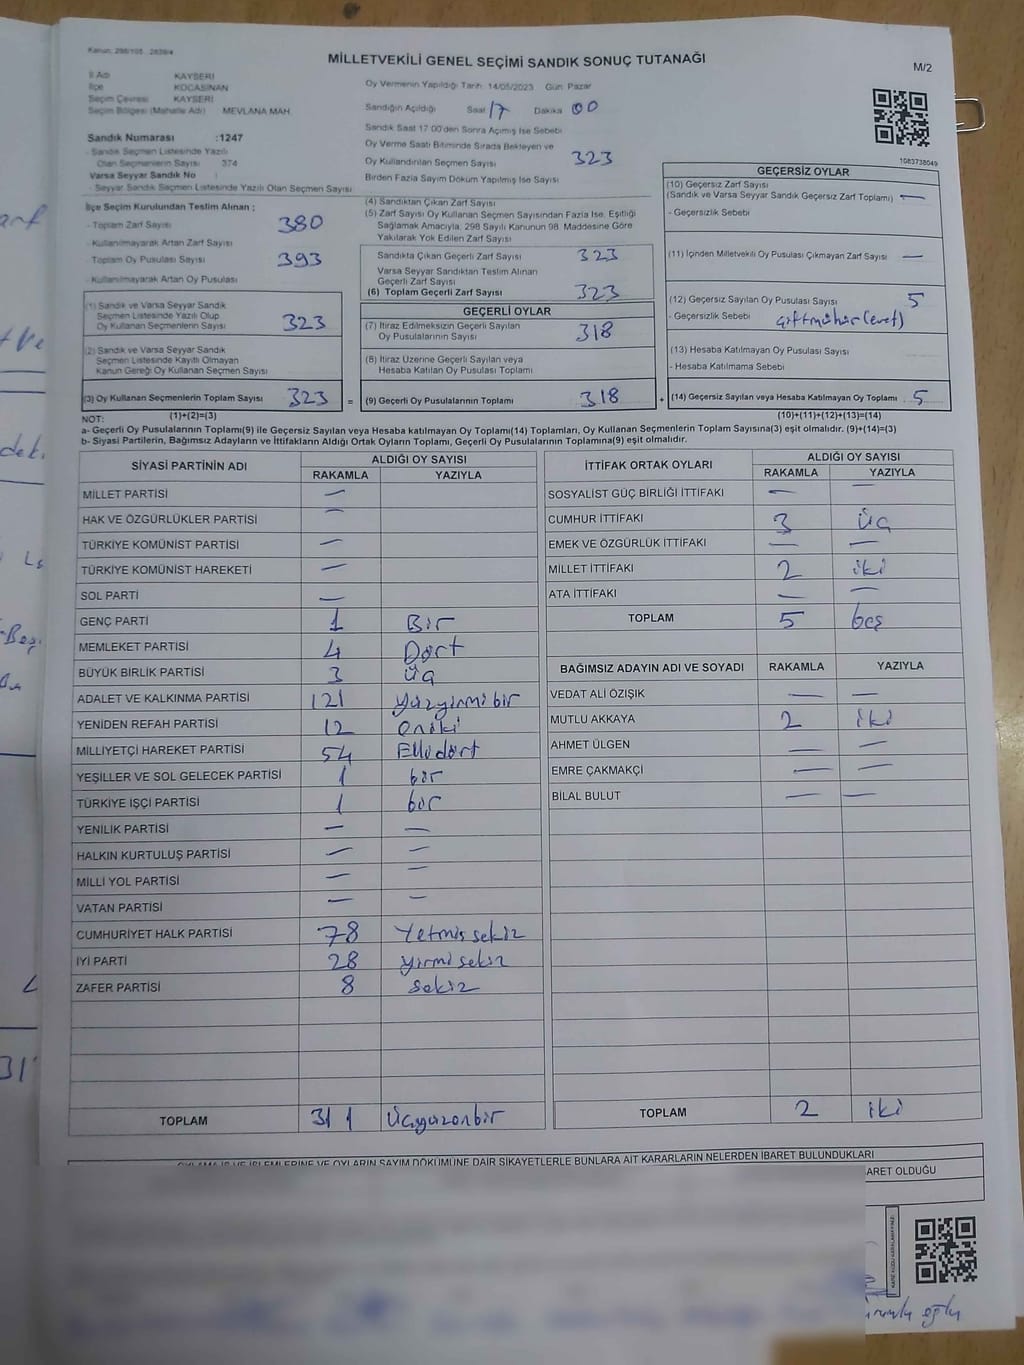 Kanun: 298/105 2839/4
MİLLETVEKİLİ GENEL SEÇİMİ SANDIK SONUÇ TUTANAĞI
M/2
İl Adı KAYSERİ
İlçe KOCASİNAN
Seçim Çevresi KAYSERİ
Seçim Bölgesi (Mahalle Adı) MEVLANA MAH.
Sandık Numarası :1247
- Sandık Seçmen Listesinde Yazılı
Olan Seçmenlerin Sayısı 374
Varsa Seyyar Sandık No :
- Seyyar Sandık Seçmen Listesinde Yazılı Olan Seçmen Sayısı
Oy Vermenin Yapıldığı Tarih: 14/05/2023 Gün: Pazar
Sandığın Açıldığı Saat 17 Dakika 00
Sandık Saat 17:00'den Sonra Açılmış İse Sebebi
Oy Verme Saati Bitiminde Sırada Bekleyen ve
Oy Kullandırılan Seçmen Sayısı 323
Birden Fazla Sayım Döküm Yapılmış İse Sayısı
1083738049
İlçe Seçim Kurulundan Teslim Alınan ;
- Toplam Zarf Sayısı 380
- Kullanılmayarak Artan Zarf Sayısı
- Toplam Oy Pusulası Sayısı 393
- Kullanılmayarak Artan Oy Pusulası
(1) Sandık ve Varsa Seyyar Sandık
Seçmen Listesinde Yazılı Olup
Oy Kullanan Seçmenlerin Sayısı 323
(2) Sandık ve Varsa Seyyar Sandık
Seçmen Listesinde Kayıtlı Olmayan
Kanun Gereği Oy Kullanan Seçmen Sayısı
(3) Oy Kullanan Seçmenlerin Toplam Sayısı 323 =
(1)+(2)=(3)
(4) Sandıktan Çıkan Zarf Sayısı
(5) Zarf Sayısı Oy Kullanan Seçmen Sayısından Fazla İse, Eşitliği
Sağlamak Amacıyla, 298 Sayılı Kanunun 98. Maddesine Göre
Yakılarak Yok Edilen Zarf Sayısı
Sandıkta Çıkan Geçerli Zarf Sayısı 323
Varsa Seyyar Sandıktan Teslim Alınan
Geçerli Zarf Sayısı
(6) Toplam Geçerli Zarf Sayısı 323
GEÇERLİ OYLAR
(7) İtiraz Edilmeksizin Geçerli Sayılan
Oy Pusulalarının Sayısı 318
(8) İtiraz Üzerine Geçerli Sayılan veya
Hesaba Katılan Oy Pusulası Toplamı
(9) Geçerli Oy Pusulalarının Toplamı 318 +
GEÇERSİZ OYLAR
(10) Geçersiz Zarf Sayısı
(Sandık ve Varsa Seyyar Sandık Geçersiz Zarf Toplamı) —
- Geçersizlik Sebebi
(11) İçinden Milletvekili Oy Pusulası Çıkmayan Zarf Sayısı —
(12) Geçersiz Sayılan Oy Pusulası Sayısı 5
- Geçersizlik Sebebi çift mühür (evet)
(13) Hesaba Katılmayan Oy Pusulası Sayısı
- Hesaba Katılmama Sebebi
(14) Geçersiz Sayılan veya Hesaba Katılmayan Oy Toplamı 5
(10)+(11)+(12)+(13)=(14)
NOT:
a- Geçerli Oy Pusulalarının Toplamı(9) ile Geçersiz Sayılan veya Hesaba katılmayan Oy Toplamı(14) Toplamları, Oy Kullanan Seçmenlerin Toplam Sayısına(3) eşit olmalıdır. (9)+(14)=(3)
b- Siyasi Partilerin, Bağımsız Adayların ve İttifakların Aldığı Ortak Oyların Toplamı, Geçerli Oy Pusulalarının Toplamına(9) eşit olmalıdır.
SİYASİ PARTİNİN ADI ALDIĞI OY SAYISI
RAKAMLA YAZIYLA
MİLLET PARTİSİ —
HAK VE ÖZGÜRLÜKLER PARTİSİ —
TÜRKİYE KOMÜNİST PARTİSİ —
TÜRKİYE KOMÜNİST HAREKETİ —
SOL PARTİ —
GENÇ PARTİ 1 Bir
MEMLEKET PARTİSİ 4 Dört
BÜYÜK BİRLİK PARTİSİ 3 üç
ADALET VE KALKINMA PARTİSİ 121 yüzyirmibir
YENİDEN REFAH PARTİSİ 12 oniki
MİLLİYETÇİ HAREKET PARTİSİ 54 Ellidört
YEŞİLLER VE SOL GELECEK PARTİSİ 1 bir
TÜRKİYE İŞÇİ PARTİSİ 1 bir
YENİLİK PARTİSİ — —
HALKIN KURTULUŞ PARTİSİ — —
MİLLİ YOL PARTİSİ — —
VATAN PARTİSİ — —
CUMHURİYET HALK PARTİSİ 78 Yetmiş sekiz
İYİ PARTİ 28 yirmi sekiz
ZAFER PARTİSİ 8 sekiz
TOPLAM 311 Üçyüzonbir
İTTİFAK ORTAK OYLARI ALDIĞI OY SAYISI
RAKAMLA YAZIYLA
SOSYALİST GÜÇ BİRLİĞİ İTTİFAKI — —
CUMHUR İTTİFAKI 3 üç
EMEK VE ÖZGÜRLÜK İTTİFAKI — —
MİLLET İTTİFAKI 2 iki
ATA İTTİFAKI — —
TOPLAM 5 beş
BAĞIMSIZ ADAYIN ADI VE SOYADI RAKAMLA YAZIYLA
VEDAT ALİ ÖZIŞIK — —
MUTLU AKKAYA 2 iki
AHMET ÜLGEN — —
EMRE ÇAKMAKÇİ — —
BİLAL BULUT — —
TOPLAM 2 iki
OYLAMA İŞ VE İŞLEMLERİNE VE OYLARIN SAYIM DÖKÜMÜNE DAİR ŞİKAYETLERLE BUNLARA AİT KARARLARIN NELERDEN İBARET BULUNDUKLARI
BARET OLDUĞU